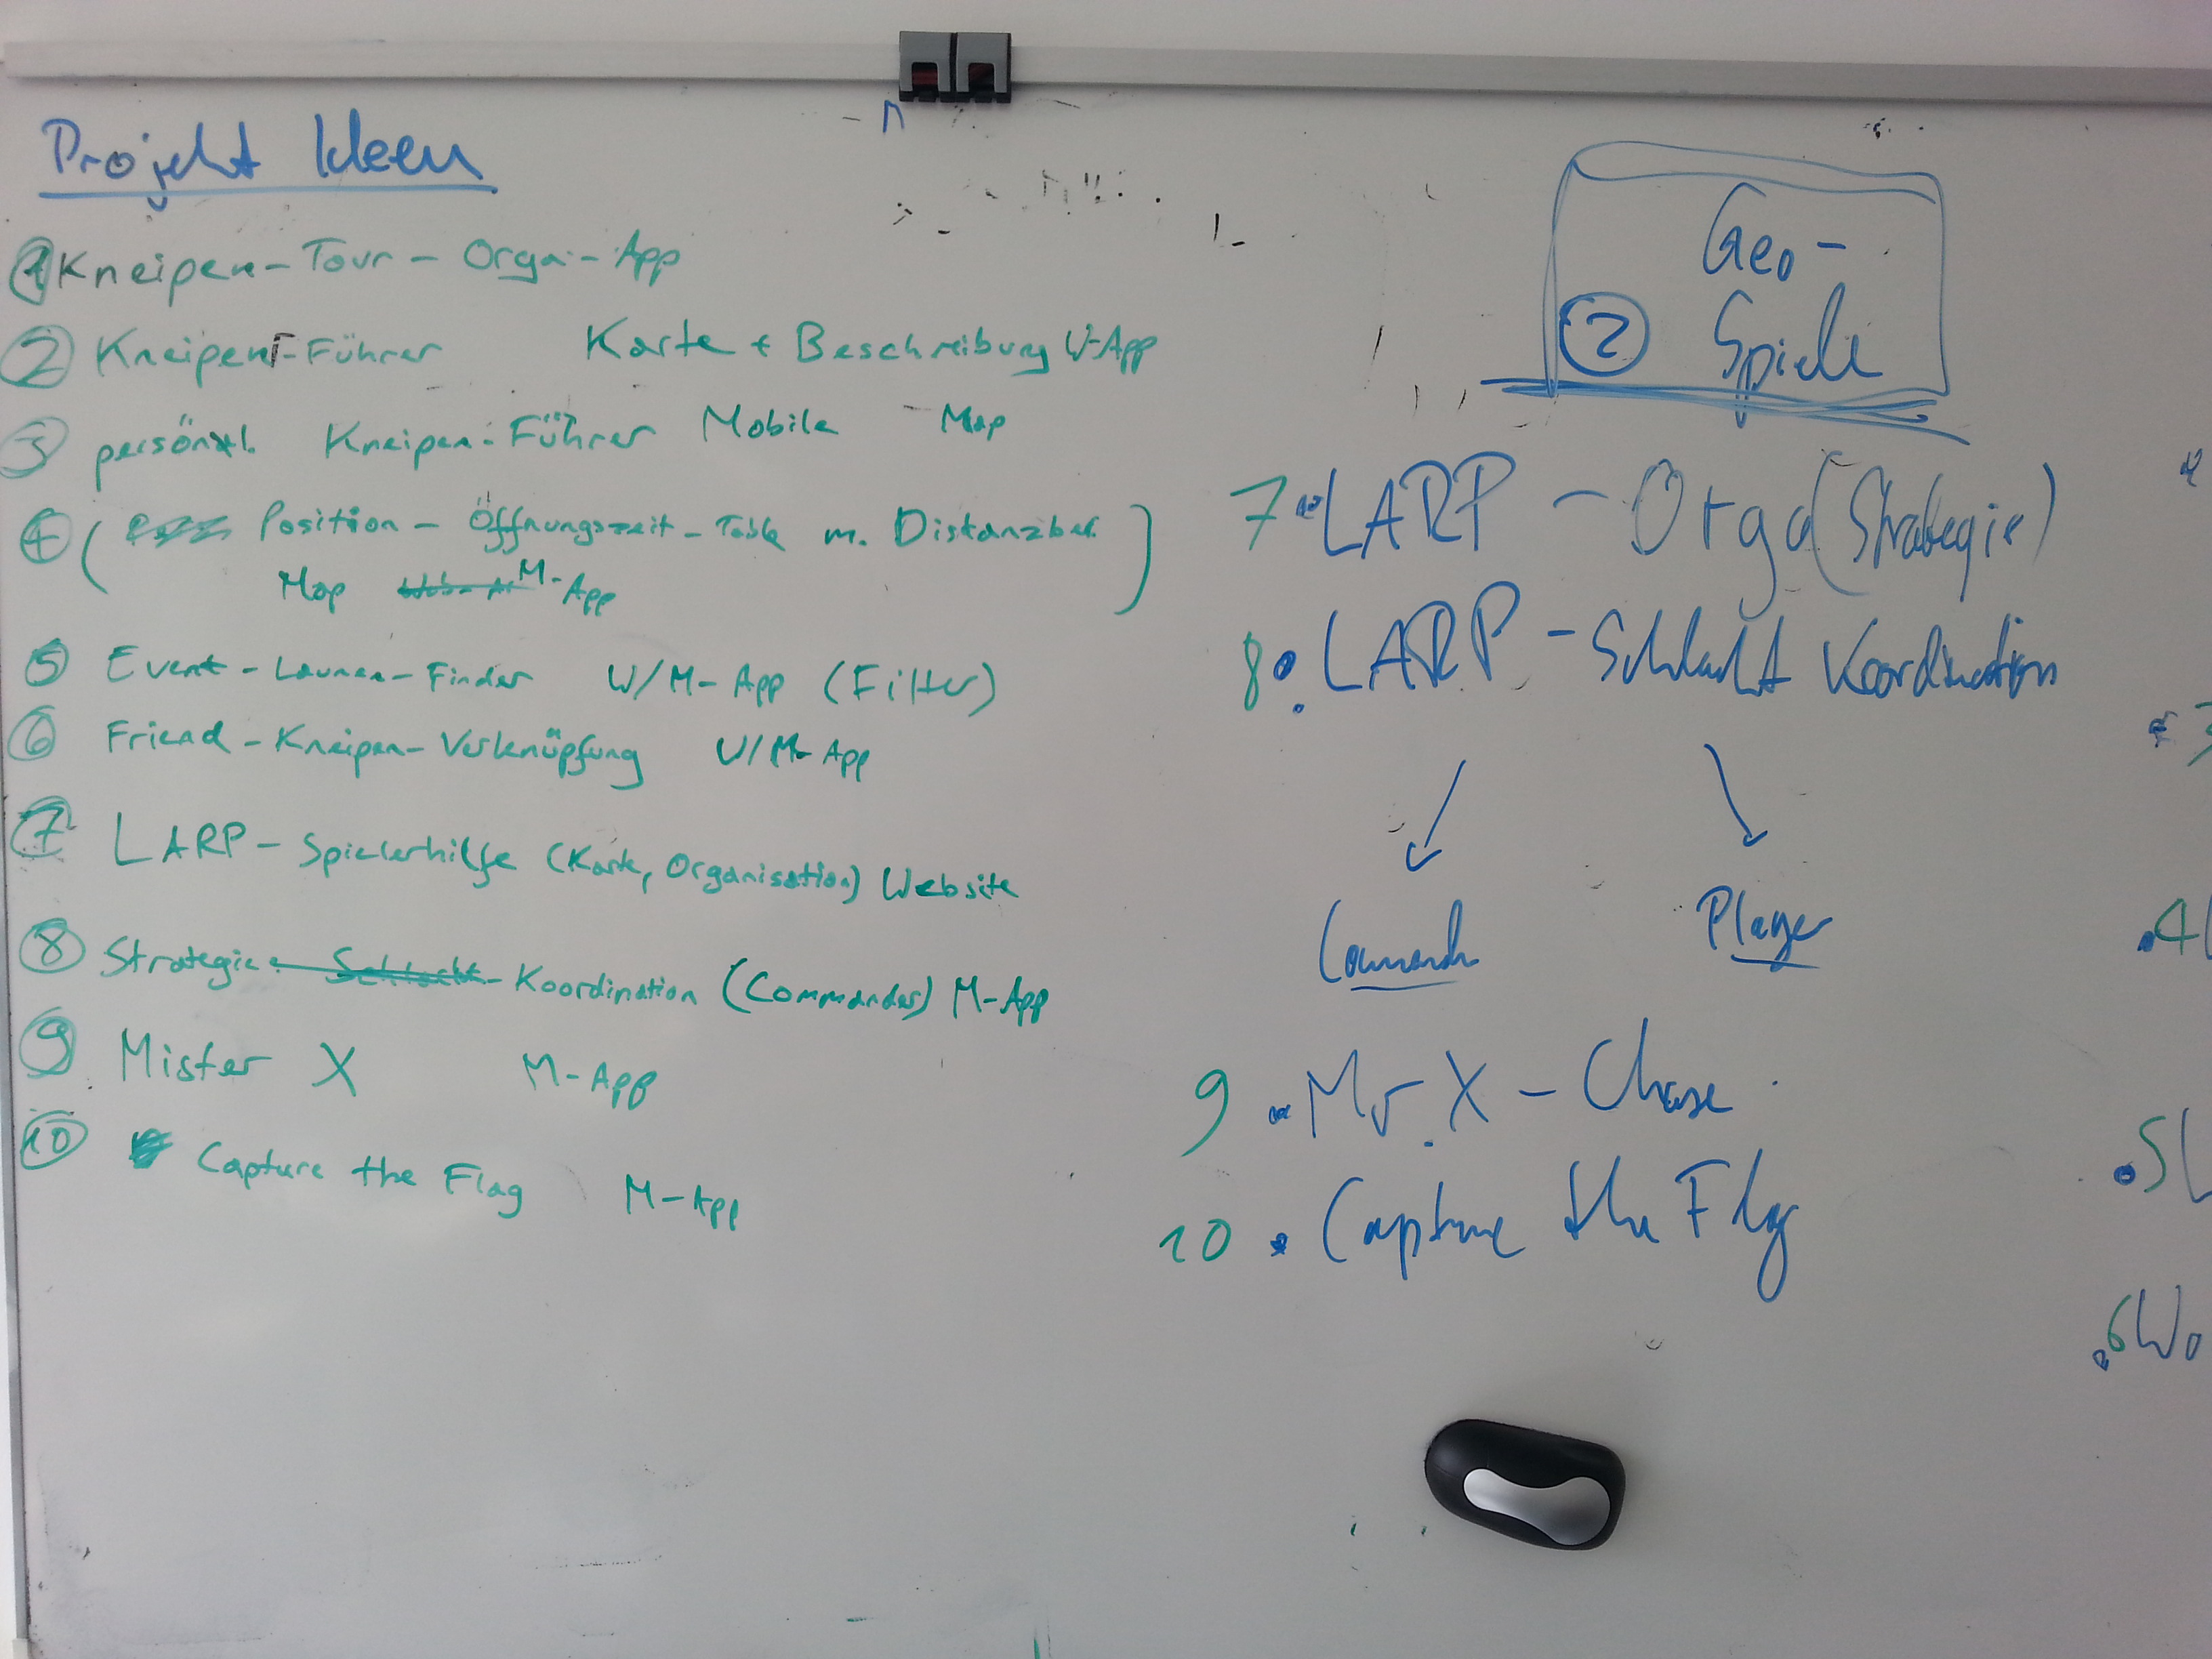 Projekt Ideen
1 Kneipen-Tour-Orga-App
2 Kneipen-Führer Karte + Beschreibung W-App
3 persönl. Kneipen-Führer Mobile Map
4 ( Position - Öffnungszeit-Table m. Distanzber. )
Map M-App
5 Event-Launen-Finder W/M-App (Filter)
6 Friend-Kneipen-Verknüpfung W/M-App
7 LARP-Spielerhilfe (Karte, Organisation) Website
8 Strategie-Schlacht-Koordination (Commander) M-App
9 Mister X M-App
10 Capture the Flag M-App
Geo-
2 Spiele
7 LARP - Orga (Strategie)
8 LARP - Schlacht Koordination
Player
9 Mr. X - Chase
10 Capture the Flag
4
5
6 Wo